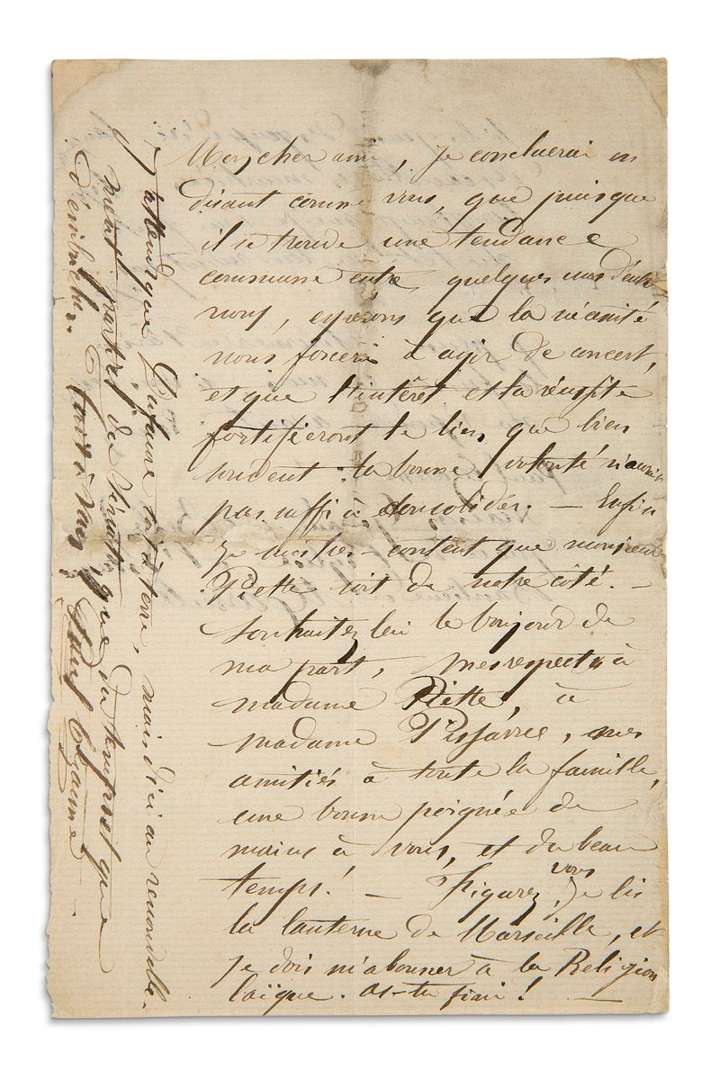 Mon cher ami, je concluerai en
disant comme vous, que puisque
il se trouve une tendance
commune entre quelques uns d'entre
nous, espérons que la nécessité
nous forcera à agir de concert,
et que l'intérêt et la réussite
fortifieront le lien que bien
souvent la bonne volonté n'aurait
pas suffi à consolider. — Enfin
je suis très content que monsieur
Piette soit de notre côté. —
Souhaitez lui le bonjour de
ma part, mes respects à
madame Piette, à
madame Pissarro, mes
amitiés à toute la famille,
une bonne poignée de
mains à vous, et du beau
temps! — Figurez vous, je lis
la lanterne de Marseille, et
je dois m'abonner à la Religion
laïque. as-tu fini! —
J'attends que Dufaure soit à terre, mais d'ici au renouvelle-
ment partiel du Sénat, que du temps et que
d'embûches. Tout à vous, Paul Cézanne